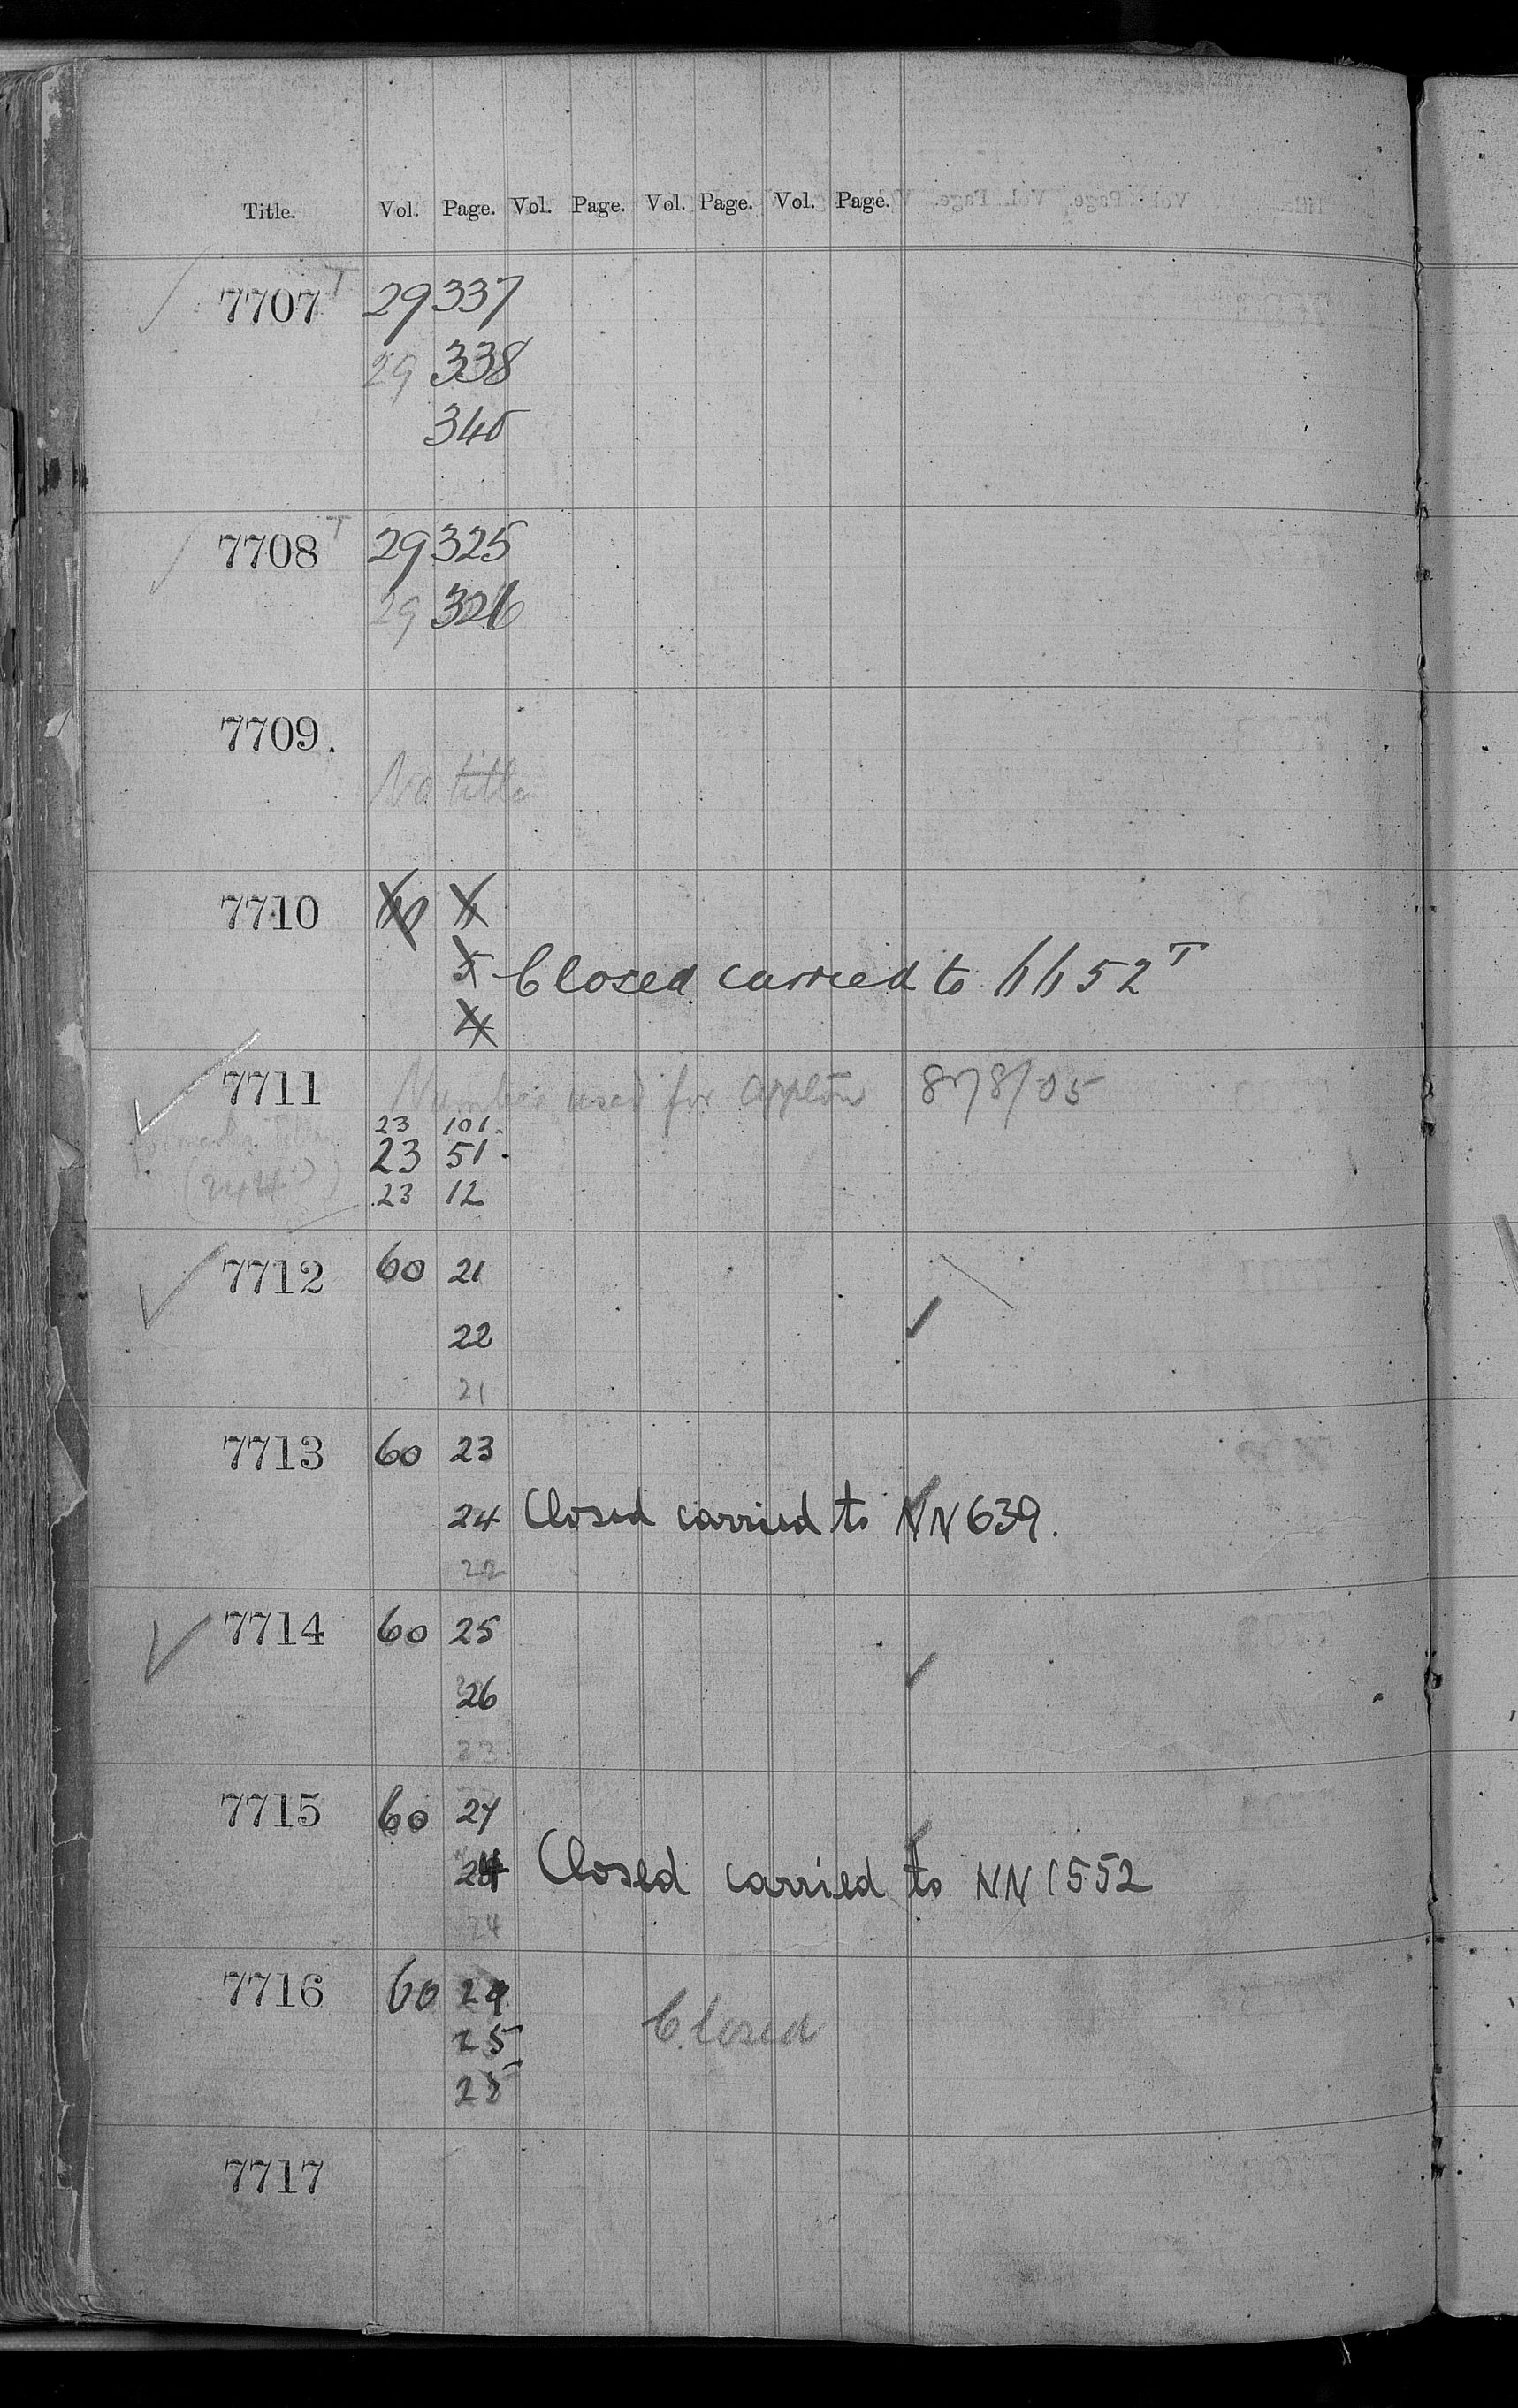 Title. Vol. Page. Vol. Page. Vol. Page. Vol. Page.
7707 T 29 337
29 338
340
7708 T 29 325
29 326
7709.
No title
7710
5 Closed carried to 6652 T
4
7711 Number used for appltn 878/05
23 101.
formerly Title 23 51.
23 12
7712 60 21
22
21
7713 60 23
24 Closed carried to NN 639.
22
7714 60 25
26
23
7715 60 27
Closed carried to NN 1552
24
7716 60 29
25 Closed
25
7717